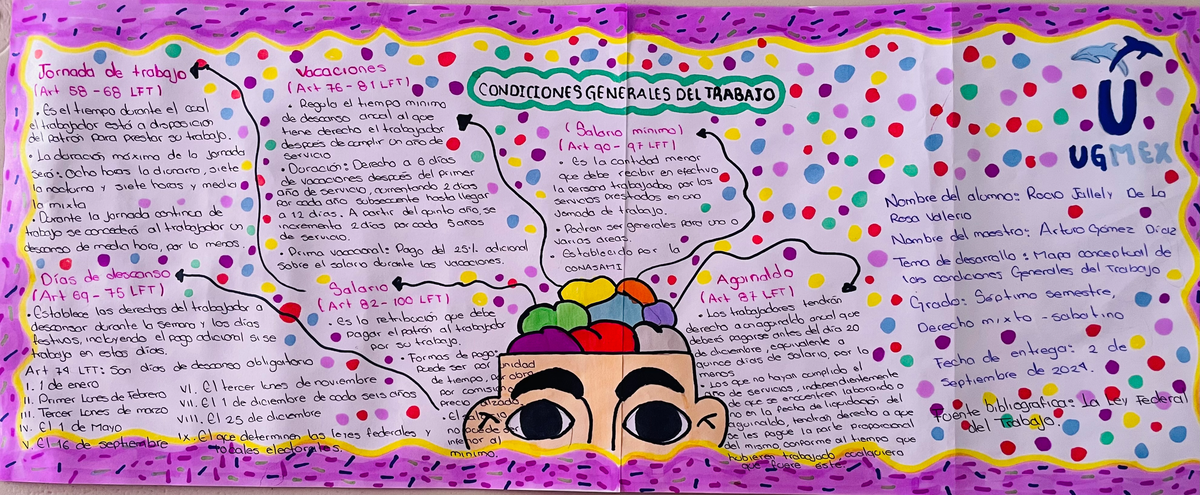 CONDICIONES GENERALES DEL TRABAJO
Jornada de trabajo
(Art 58 - 68 LFT)
• Es el tiempo durante el cual
el trabajador está a disposición
del patrón para prestar su trabajo.
• La duración máxima de la jornada
será: Ocho horas la diurna, siete
la nocturna y siete horas y media
la mixta
• Durante la jornada continua de
trabajo se concederá al trabajador un
descanso de media hora, por lo menos.
Días de descanso
(Art 69 - 75 LFT)
• Establece los derechos del trabajador a
descansar durante la semana y los días
festivos, incluyendo el pago adicional si se
trabaja en estos días.
Art 74 LFT: Son días de descanso obligatorio
I. 1 de enero
II. Primer Lunes de Febrero
III. Tercer Lunes de marzo
IV. El 1 de Mayo
V. El 16 de septiembre
VI. El tercer lunes de noviembre
VII. El 1 de diciembre de cada seis años
VIII. El 25 de diciembre
IX. El que determinen las leyes federales y
locales electorales.
Vacaciones
(Art 76 - 81 LFT)
• Regula el tiempo mínimo
de descanso anual al que
tiene derecho el trabajador
después de cumplir un año de
servicio
• Duración: Derecho a 6 días
de vacaciones después del primer
año de servicio, aumentando 2 días
por cada año subsecuente hasta llegar
a 12 días. A partir del quinto año, se
incrementa 2 días por cada 5 años
de servicio.
• Prima vacacional: Pago del 25% adicional
sobre el salario durante las vacaciones.
Salario
(Art 82 - 100 LFT)
• Es la retribución que debe
pagar el patrón al trabajador
por su trabajo.
• Formas de pago:
puede ser por unidad
de tiempo, por obra,
por comisión
precio
• El
no puede ser
inferior al
mínimo.
(Salario mínimo)
(Art 90 - 97 LFT)
• Es la cantidad menor
que debe recibir en efectivo
la persona trabajadora por los
servicios prestados en una
jornada de trabajo.
• Podrán ser generales para una o
varias áreas.
• Establecido por la
CONASAMI
Aguinaldo
(Art 87 LFT)
• Los trabajadores tendrán
derecho a un aguinaldo anual que
deberá pagarse antes del día 20
de diciembre, equivalente a
quince días de salario, por lo
menos
• Los que no hayan cumplido el
año de servicios, independientemente
de que se encuentren laborando o
no en la fecha de liquidación del
aguinaldo, tendrán derecho a que
se les pague la parte proporcional
del mismo conforme al tiempo que
hubieren trabajado, cualquiera
que fuere este.
U
UGMEX
Nombre del alumno: Rocio Jillely De La
Rosa Valerio
Nombre del maestro: Arturo Gómez Díaz
Tema de desarrollo: Mapa conceptual de
las condiciones Generales del Trabajo
Grado: Séptimo semestre,
Derecho mixto - sabatino
Fecha de entrega: 2 de
septiembre de 2024.
Fuente bibliográfica: La Ley Federal
del Trabajo.